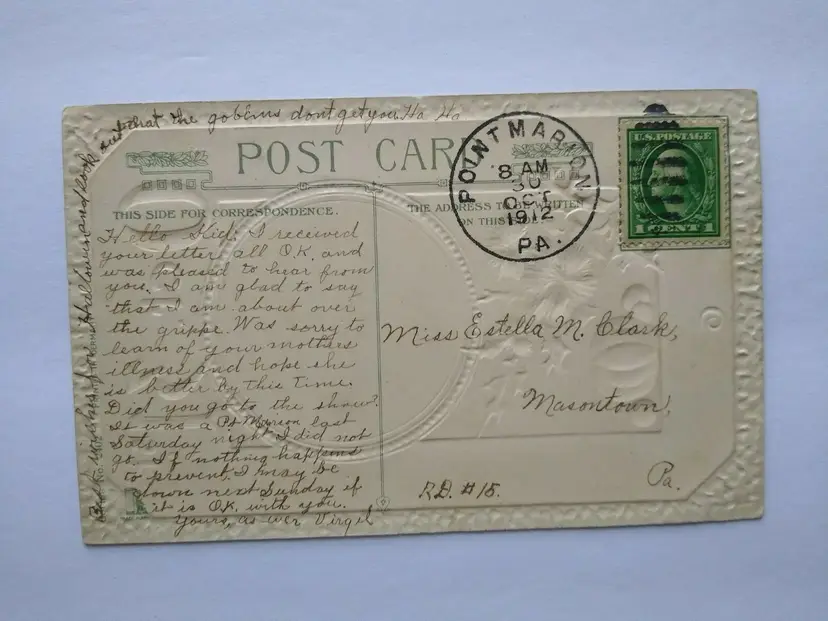 that the gobems dont get you Ha Ha
POST CARD
THIS SIDE FOR CORRESPONDENCE.
THE ADDRESS TO BE WRITTEN
ON THIS
POINT MARION
8 AM
30
OCT
1912
PA.
U.S. POSTAGE
1 CENT 1
Hello Kid: I received
your letter all O.K. and
was pleased to hear from
you. I am glad to say
that I am about over
the grippe. Was sorry to
learn of your mothers
illness and hope she
is better by this time.
Did you go to the show?
It was a Pt Marion last
Saturday night I did not
go. If nothing happens
to prevent I may be
down next Sunday if
it is O.K. with you.
Yours, as ever Virgel
Best wishes for Halloween and look out
Miss Estella M. Clark,
Masontown,
Pa.
R.D. #15.